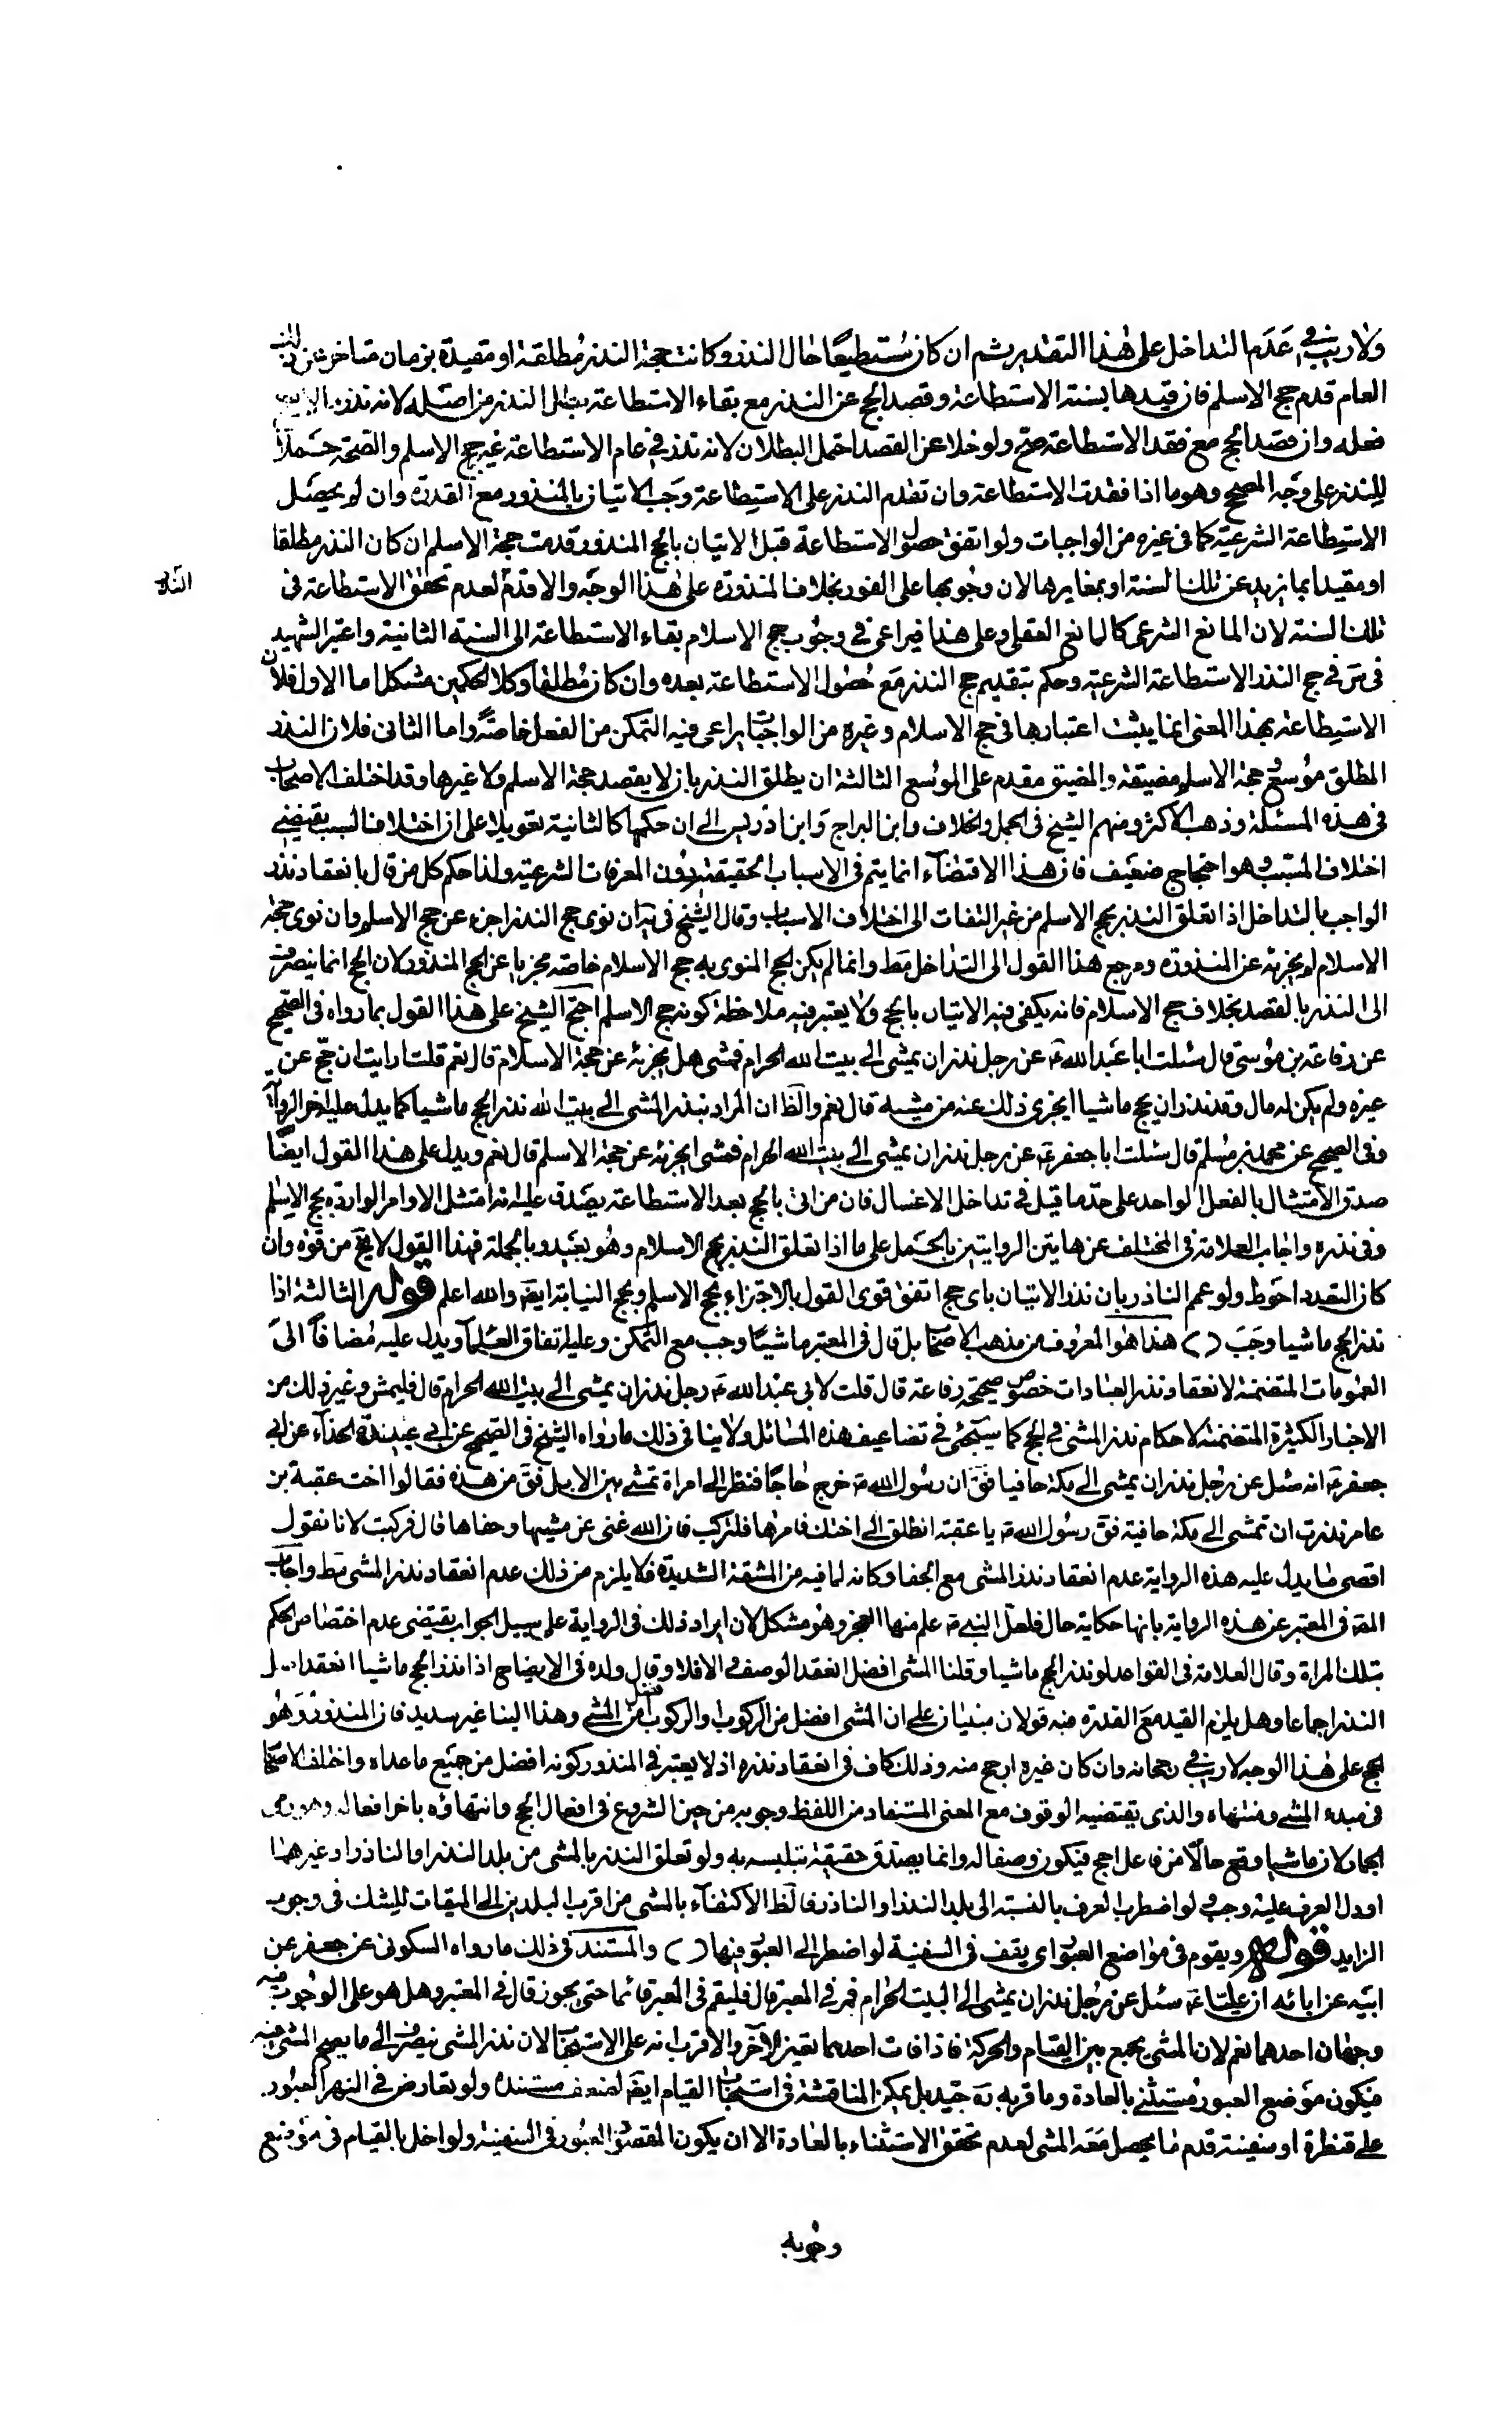 ولا ريب في عدم التداخل على هذا التقدير ثم ان كان مستطيعا حال النذر وكانت حجة النذر مطلقة او مقيدة بزمان متاخر عن ذلك
العام قدم حج الاسلم فان قيدها بسنة الاستطاعة وقصد الحج عن النذر مع بقاء الاستطاعة بطل النذر من اصله لانه نذر
فعله وان قصد الحج مع فقد الاستطاعة صح ولو خلا عن القصد احتمل البطلان لانه نذر في عام الاستطاعة غير حج الاسلم والصحة حملا
للنذر على وجه الصحيح وهو ما اذا فقدت الاستطاعة وان تقدم النذر على الاستيطاعة وجب الاتيان بالمنذور مع القدرة وان لم يحصل
الاستيطاعة الشرعية كما في غيره من الواجبات ولو اتفق حصول الاستطاعة قبل الاتيان بالحج المنذور قدمت حجة الاسلم ان كان النذر مطلقا
او مقيدا بما يزيد عن تلك السنة او بمغايرها لان وجوبها على الفور بخلاف المنذورة على هذا الوجه والا قدم لعدم تحقق الاستطاعة في
النذر
تلك السنة لان المانع الشرعي كالمانع العقلي وعلى هذا فيراعى في وجوب حج الاسلام بقاء الاستطاعة الى السنة الثانية واعتبر الشهيد
في س في حج النذر الاستطاعة الشرعية وحكم بتقديم حج النذر مع حصول الاستطاعة بعده وان كان مطلقا وكلا الحكمين مشكل اما الاول فلان
الاستيطاعة بهذا المعنى انما يثبت اعتبارها في حج الاسلام وغيره من الواجبات يراعى فيه التمكن من الفعل خاصة واما الثاني فلان النذر
المطلق موسع وحجة الاسلم مضيقة والمضيق مقدم على الموسع الثالثة ان يطلق النذر بان لا يقصد حجة الاسلم ولا غيرها وقد اختلف الاصحاب
في هذه المسئلة وذهب الاكثر ومنهم الشيخ في الجمل والخلاف وابن البراج وابن ادريس الى ان حكمها كالثانية تعويلا على ان اختلاف السبب يقتضي
اختلاف المسبب وهو احتجاج ضعيف فان هذا الاقتضاء انما يتم في الاسباب الحقيقة دون المعرفات الشرعية ولذا حكم كل من قال بانعقاد نذر
الواجب بالتداخل اذا تعلق النذر بحج الاسلم من غير التفات الى اختلاف الاسباب وقال الشيخ في ية ان نوى حج النذر اجزء عن حج الاسلم وان نوى حجة
الاسلام لم يجزئه عن المنذورة ومرجع هذا القول الى التداخل مط وانما لم يكن الحج المنوي به حج الاسلام خاصة مجزيا عن الحج المنذور لان الحج انما ينصرف
الى النذر بالقصد بخلاف حج الاسلام فانه يكفى فيه الاتيان بالحج ولا يعتبر فيه ملاحظة كونه حج الاسلم احتج الشيخ على هذا القول بما رواه في الصحيح
عن رفاعة بن موسى قال سئلت ابا عبدالله ع عن رجل نذر ان يمشي الى بيت الله الحرام فمشى هل يجزئه عن حجة الاسلام قال نعم قلت ارايت ان حج عن
غيره ولم يكن له مال وقد نذر ان يحج ماشيا ايجزي ذلك عنه من مشيه قال نعم والظ ان المراد بنذر المشي الى بيت الله نذر الحج ماشيا كما يدل عليه اخر الرواية
وفي الصحيح عن محمد بن مسلم قال سئلت ابا جعفر ع عن رجل نذر ان يمشي الى بيت الله الحرام فمشى ايجزئه عن حجة الاسلم قال نعم ويدل على هذا القول ايضا
صدق الامتثال بالفعل الواحد على حد ما قيل في تداخل الاغسال فان من اتى بالحج بعد الاستطاعة يصدق عليه انه امتثل الاوامر الواردة بحج الاسلم
وفي نذره واجاب العلامة في المختلف عن هاتين الروايتين بالحمل على ما اذا تعلق النذر بحج الاسلام وهو بعيد وبالجملة فهذا القول لا يخ من قوة وان
كان التعدد احوط ولو عمم الناذر بان نذر الاتيان باى حج اتفق قوى القول بالاجتزاء بحج الاسلم وبحج النيابة ايضا والله اعلم قوله الثالثة اذا
نذر الحج ماشيا وجب ( ) هذا هو المعروف من مذهب الاصحاب بل قال في المعتبر ماشيا وجب مع التمكن وعليه اتفاق العلماء ويدل عليه مضافا الى
العمومات المتضمنة لانعقاد نذر العبادات خصوص صحيحة رفاعة قال قلت لابي عبدالله ع رجل نذر ان يمشي الى بيت الله الحرام قال فليمش وغير ذلك من
الاخبار الكثيرة المتضمنة لاحكام نذر المشي في الحج كما سيجئ في تضاعيف هذه المسائل ولا ينافي ذلك ما رواه الشيخ في الصحيح عن ابي عبيدة الحذاء عن ابي
جعفر ع انه سئل عن رجل نذر ان يمشي الى مكة حافيا فق ان رسول الله ص خرج حاجا فنظر الى امراة تمشي بين الابل فق من هذه فقالوا اخت عقبة بن
عامر نذرت ان تمشي الى مكة حافية فق رسول الله ص يا عقبة انطلق الى اختك فامرها فلتركب فان الله غني عن مشيها وحفاها قال فركبت لانا نقول
اقصى ما يدل عليه هذه الرواية عدم انعقاد نذر المشي مع الحفا وكانه لما فيه من المشقة الشديدة فلا يلزم من ذلك عدم انعقاد نذر المشي مط واجاب
المص في المعتبر عن هذه الرواية بانها حكاية حال فلعل النبي ص علم منها العجز وهو مشكل لان ايراد ذلك في الرواية على سبيل الجواب يقتضي عدم اختصاص الحكم
بتلك المراة وقال العلامة في القواعد لو نذر الحج ماشيا وقلنا المشي افضل انعقد الوصف والا فلا وقال ولده في الايضاح اذا نذر الحج ماشيا انعقد اصل
النذر اجماعا وهل يلزم القيد مع القدرة فيه قولان مبنيان على ان المشي افضل من الركوب او الركوب افضل من المشي وهذا البنا غير سديد فان المنذور وهو
الحج على هذا الوجه لا ريب في رجحانه وان كان غيره ارجح منه وذلك كاف في انعقاد نذره اذ لا يعتبر في المنذور كونه افضل من جميع ما عداه واختلف الاصحاب
في مبدء المشي ومنتهاه والذي يقتضيه الوقوف مع المعنى المستفاد من اللفظ وجوبه من حين الشروع في افعال الحج وانتهاؤه باخر افعاله وهو رمي
الجمار لان ماشيا وقع حالا من فاعل احج فيكون وصفا له وانما يصدق حقيقة بتلبسه به ولو تعلق النذر بالمشي من بلد النذر او الناذر او غيرهما
او دل العرف عليه وجب ولو اضطرب العرف بالنسبة الى بلد النذر او الناذر فالظ الاكتفاء بالمشي من اقرب البلدين الى الميقات للشك في وجوب
الزايد قوله ويقوم في مواضع العبور اي يقف في السفينة لو اضطر الى العبور فيها ( ) والمستند في ذلك ما رواه السكوني عن جعفر عن
ابيه عن ابائه ان عليا ع سئل عن رجل نذر ان يمشي الى البيت الحرام فمر في المعبر قال فليقم في المعبر قائما حتى يجوز قال في المعتبر وهل هو على الوجوب فيه
وجهان احدهما نعم لان المشي يجمع بين القيام والحركة فاذا فات احدهما تعين الآخر والاقرب انه على الاستحباب لان نذر المشي ينصرف الى ما يصح المشي فيه
فيكون موضع العبور مستثنى بالعادة وما قربه ره جيد بل يمكن المناقشة في استحباب القيام ايضا لضعف مستنده ولو تعارض في النهر العبور
على قنطرة او سفينة قدم ما يحصل معه المشي لعدم تحقق الاستثناء بالعادة الا ان يكون المقصود العبور في السفينة ولو اخل بالقيام في موضع
وجوبه